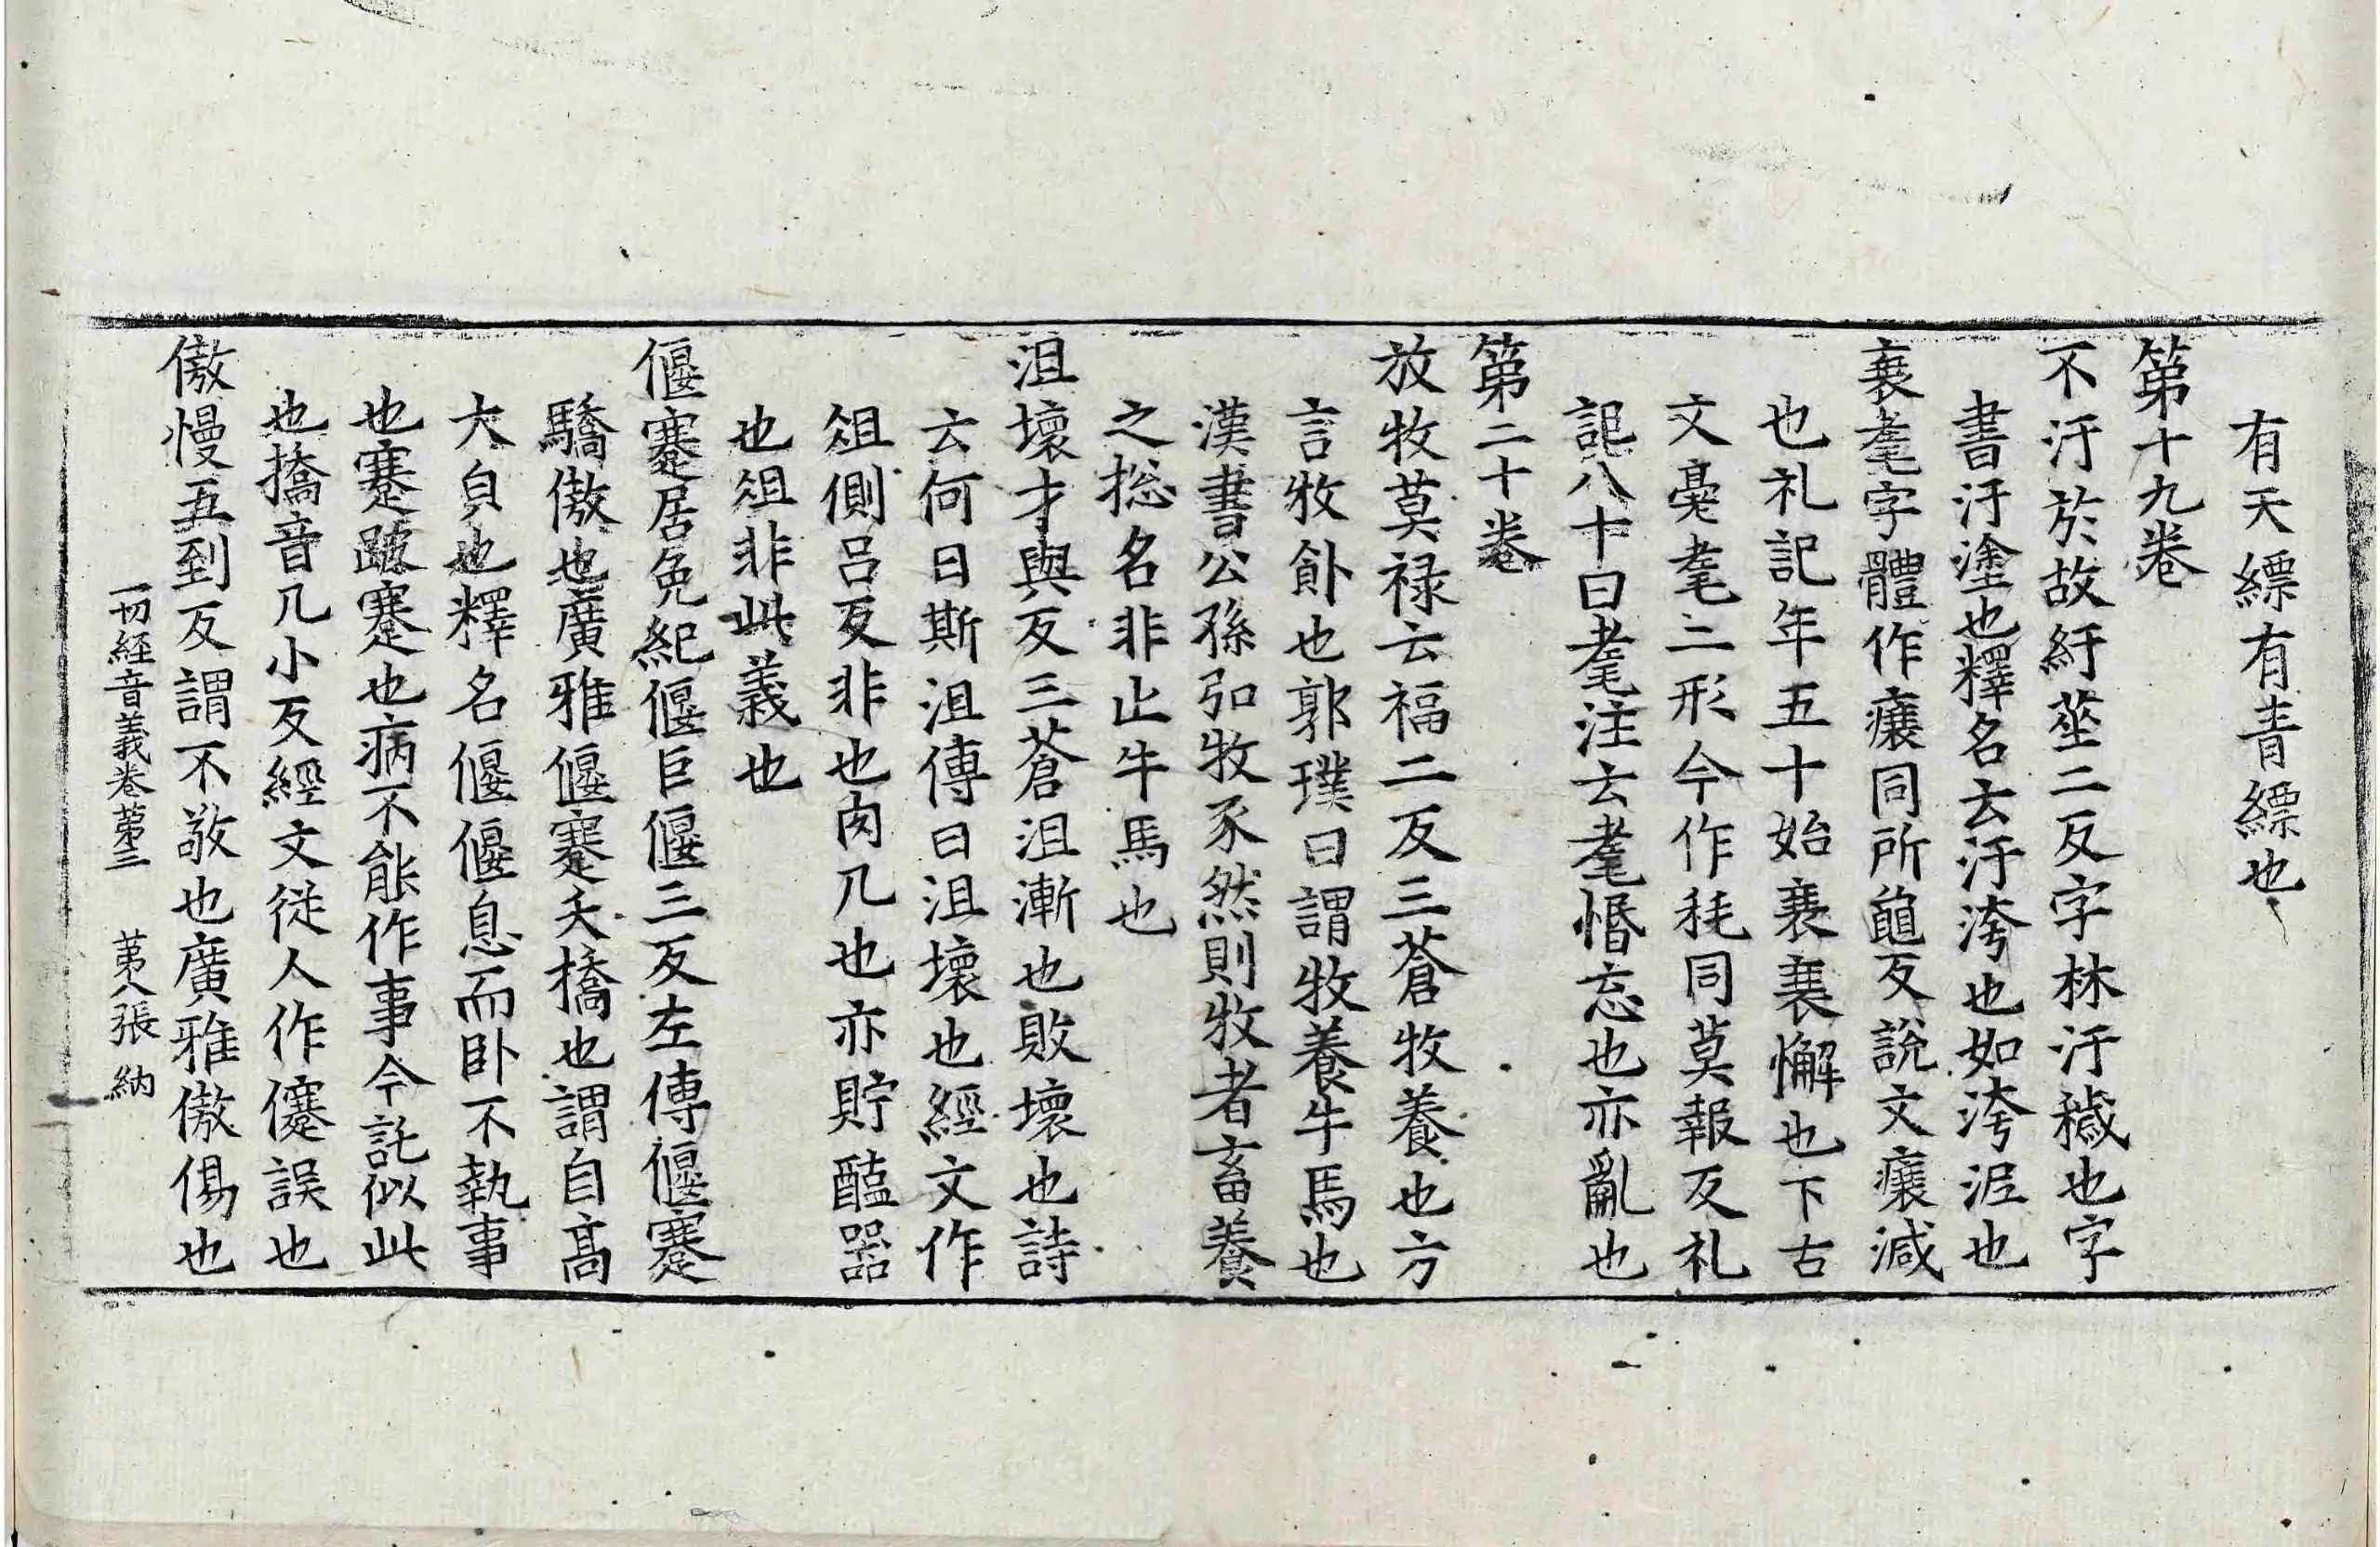 有天縹有青縹也
第十九卷
不汙於故紆莝二反字林汙穢也字
書汙塗也釋名云汙洿也如洿泥也
衰耄字體作㾕同所龜反說文㾕減
也礼記年五十始衰衰懈也下古
文薹耄二形今作秏同莫報反礼
記八十曰耄注云耄惛忘也亦亂也
第二十卷
放牧莫祿云福二反三蒼牧養也方
言牧飤也郭璞曰謂牧養牛馬也
漢書公孫弘牧豕然則牧者畜養
之捴名非止牛馬也
沮壞才與反三蒼沮漸也敗壞也詩
云何日斯沮傳曰沮壞也經文作
俎側呂反非也肉几也亦貯醢器
也俎非此義也
偃蹇居免紀偃巨偃三反左傳偃蹇
驕傲也廣雅偃蹇夭撟也謂自高
大皃也釋名偃偃息而卧不執事
也蹇跛蹇也病不能作事今託似此
也撟音几小反經文從人作㒄誤也
傲慢五到反謂不敬也廣雅傲傷也
一切經音義卷第三 第八張 納